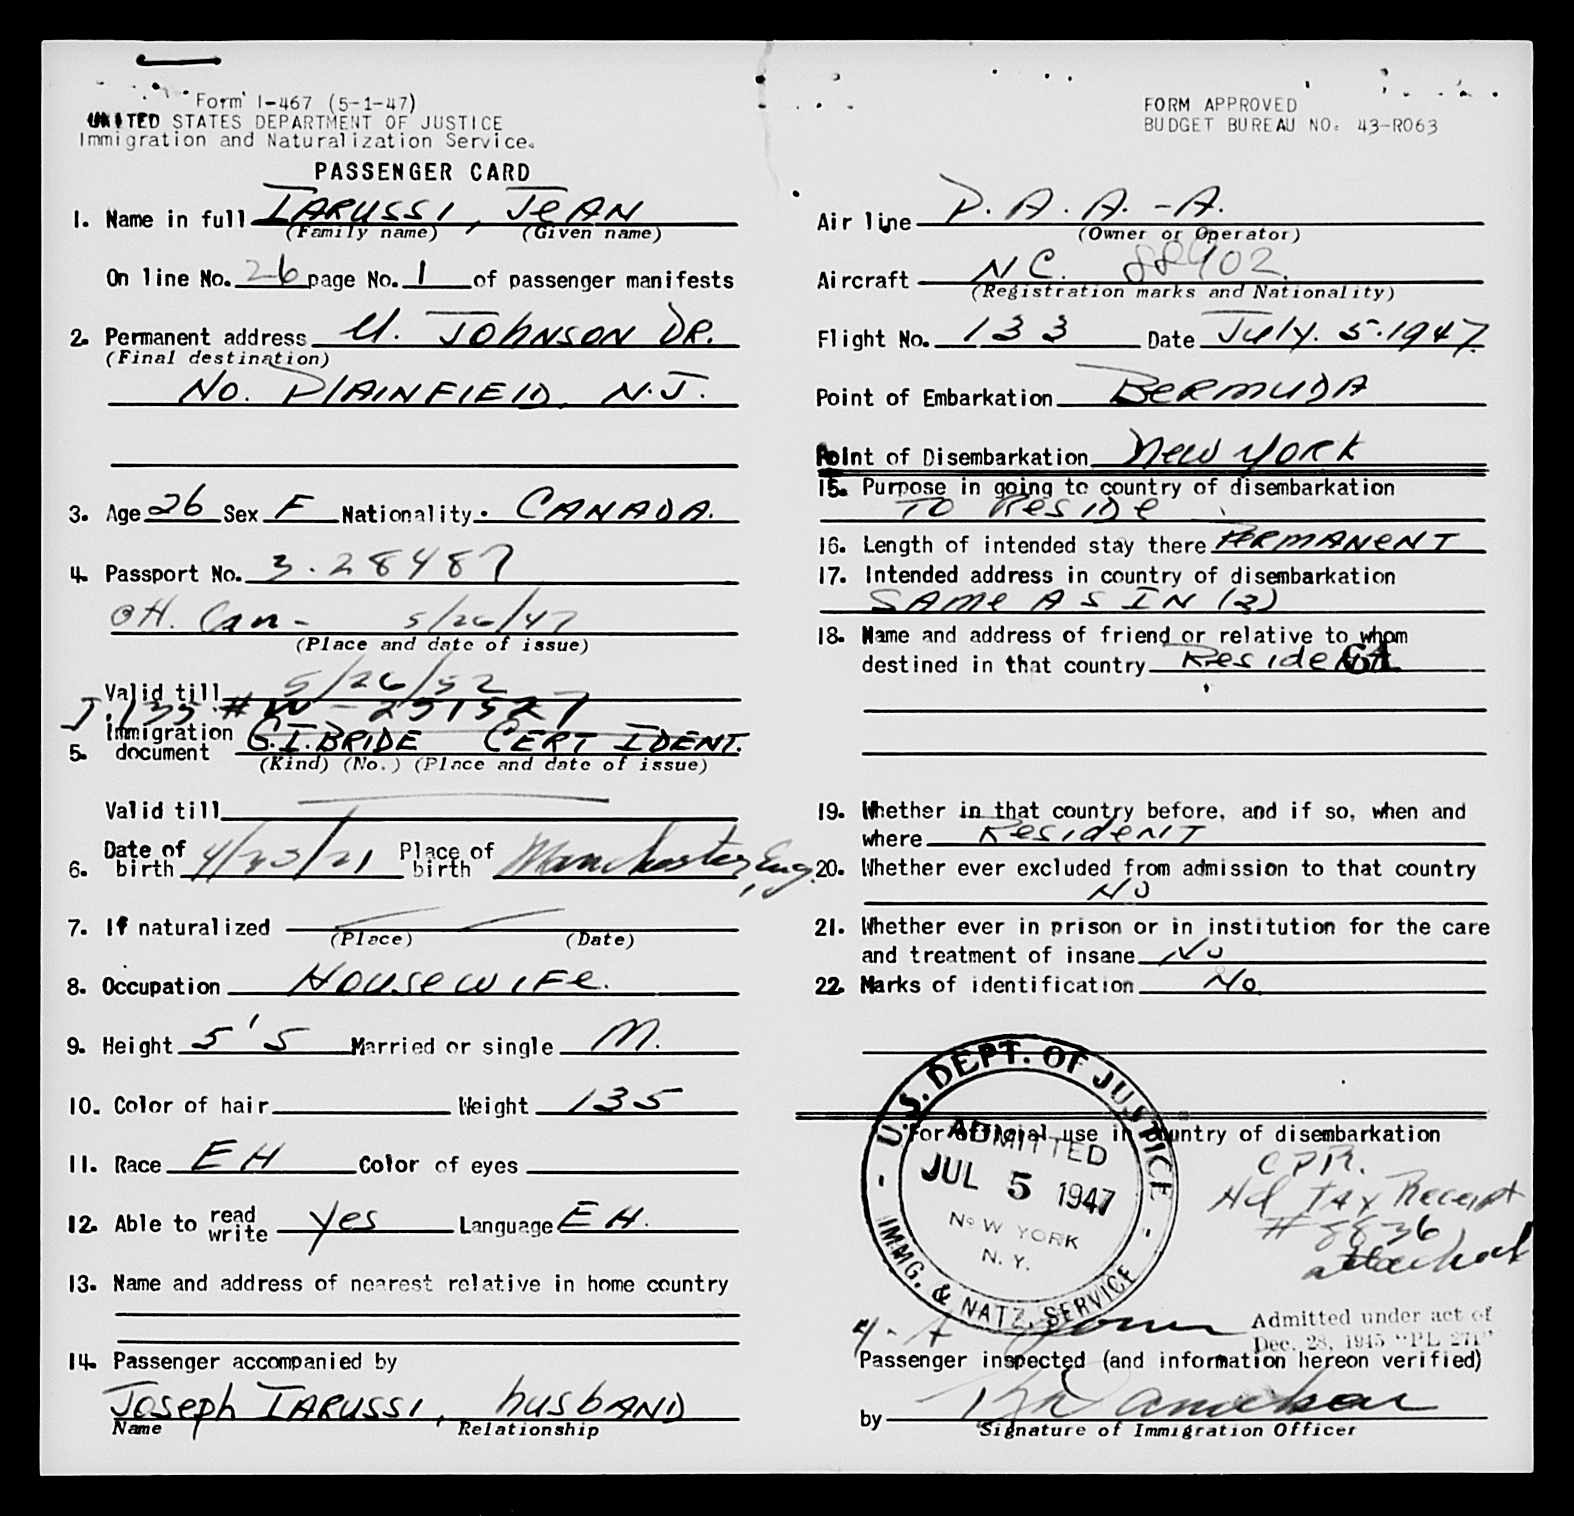 Form I-467 (5-1-47)
UNITED STATES DEPARTMENT OF JUSTICE
Immigration and Naturalization Service.
PASSENGER CARD
1. Name in full IARUSSI, JeAN
(Family name) (Given name)
On line No. 26 page No. 1 of passenger manifests
2. Permanent address U. JOhNSON DR.
(Final destination)
No. PlAINFIElD, N.J.
3. Age 26 Sex F Nationality. CANADA.
4. Passport No. 3.28487
OH. Can- 5/26/47
(Place and date of issue)
Valid till 5/26/52
I.135 # W-251527
5. Immigration document G.I.BRIDE CERT IDENT.
(Kind) (No.) (Place and date of issue)
Valid till
6. Date of birth 4/23/21 Place of birth Manchester, Eng.
7. If naturalized
(Place) (Date)
8. Occupation HousewiFe.
9. Height 5'5 Married or single M.
10. Color of hair Weight 135
11. Race EH Color of eyes
12. Able to read write yes Language EH.
13. Name and address of nearest relative in home country
14. Passenger accompanied by
Joseph IARUSSI, husbAND
Name Relationship
FORM APPROVED
BUDGET BUREAU NO. 43-R063
Air line P.A.A.-A.
(Owner or Operator)
Aircraft NC. 88902.
(Registration marks and Nationality)
Flight No. 133 Date July.5.1947.
Point of Embarkation BeRmuDA
Point of Disembarkation New York
15. Purpose in going to country of disembarkation
To ResIDe
16. Length of intended stay there PeRMANeNT
17. Intended address in country of disembarkation
SAme AS IN (2)
18. Name and address of friend or relative to whom
destined in that country Resident
19. Whether in that country before, and if so, when and
where ResideNT
20. Whether ever excluded from admission to that country
No
21. Whether ever in prison or in institution for the care
and treatment of insane No
22. Marks of identification No
For official use in country of disembarkation
U.S. DEPT. OF JUSTICE
ADMITTED
JUL 5 1947
NEW YORK
N.Y.
IMMG. & NATZ. SERVICE
Hd Tax Receipt
# 8836
attached
Admitted under act of
Dec. 28, 1945 "PL 271"
Passenger inspected (and information hereon verified)
by
Signature of Immigration Officer